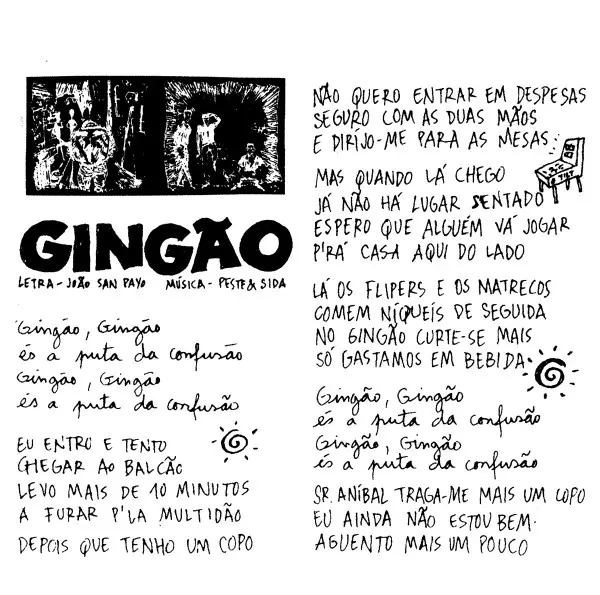 GINGÃO
LETRA - JOÃO SAN PAYO MÚSICA - PESTE & SIDA
Gingão, Gingão
és a puta da confusão
Gingão, Gingão
és a puta da confusão
EU ENTRO E TENTO
CHEGAR AO BALCÃO
LEVO MAIS DE 10 MINUTOS
A FURAR P'LA MULTIDÃO
DEPOIS QUE TENHO UM COPO
NÃO QUERO ENTRAR EM DESPESAS
SEGURO COM AS DUAS MÃOS
E DIRÍJO-ME PARA AS MESAS
MAS QUANDO LÁ CHEGO
JÁ NÃO HÁ LUGAR SENTADO
ESPERO QUE ALGUÉM VÁ JOGAR
P'RÁ CASA AQUI DO LADO
LÁ OS FLIPERS E OS MATRECOS
COMEM NÍQUEÍS DE SEGUIDA
NO GINGÃO CURTE-SE MAIS
SÓ GASTAMOS EM BEBIDA
Gingão, Gingão
és a puta da confusão
Gingão, Gingão
és a puta da confusão
SR. ANÍBAL TRAGA-ME MAIS UM COPO
EU AINDA NÃO ESTOU BEM.
AGUENTO MAIS UM POUCO